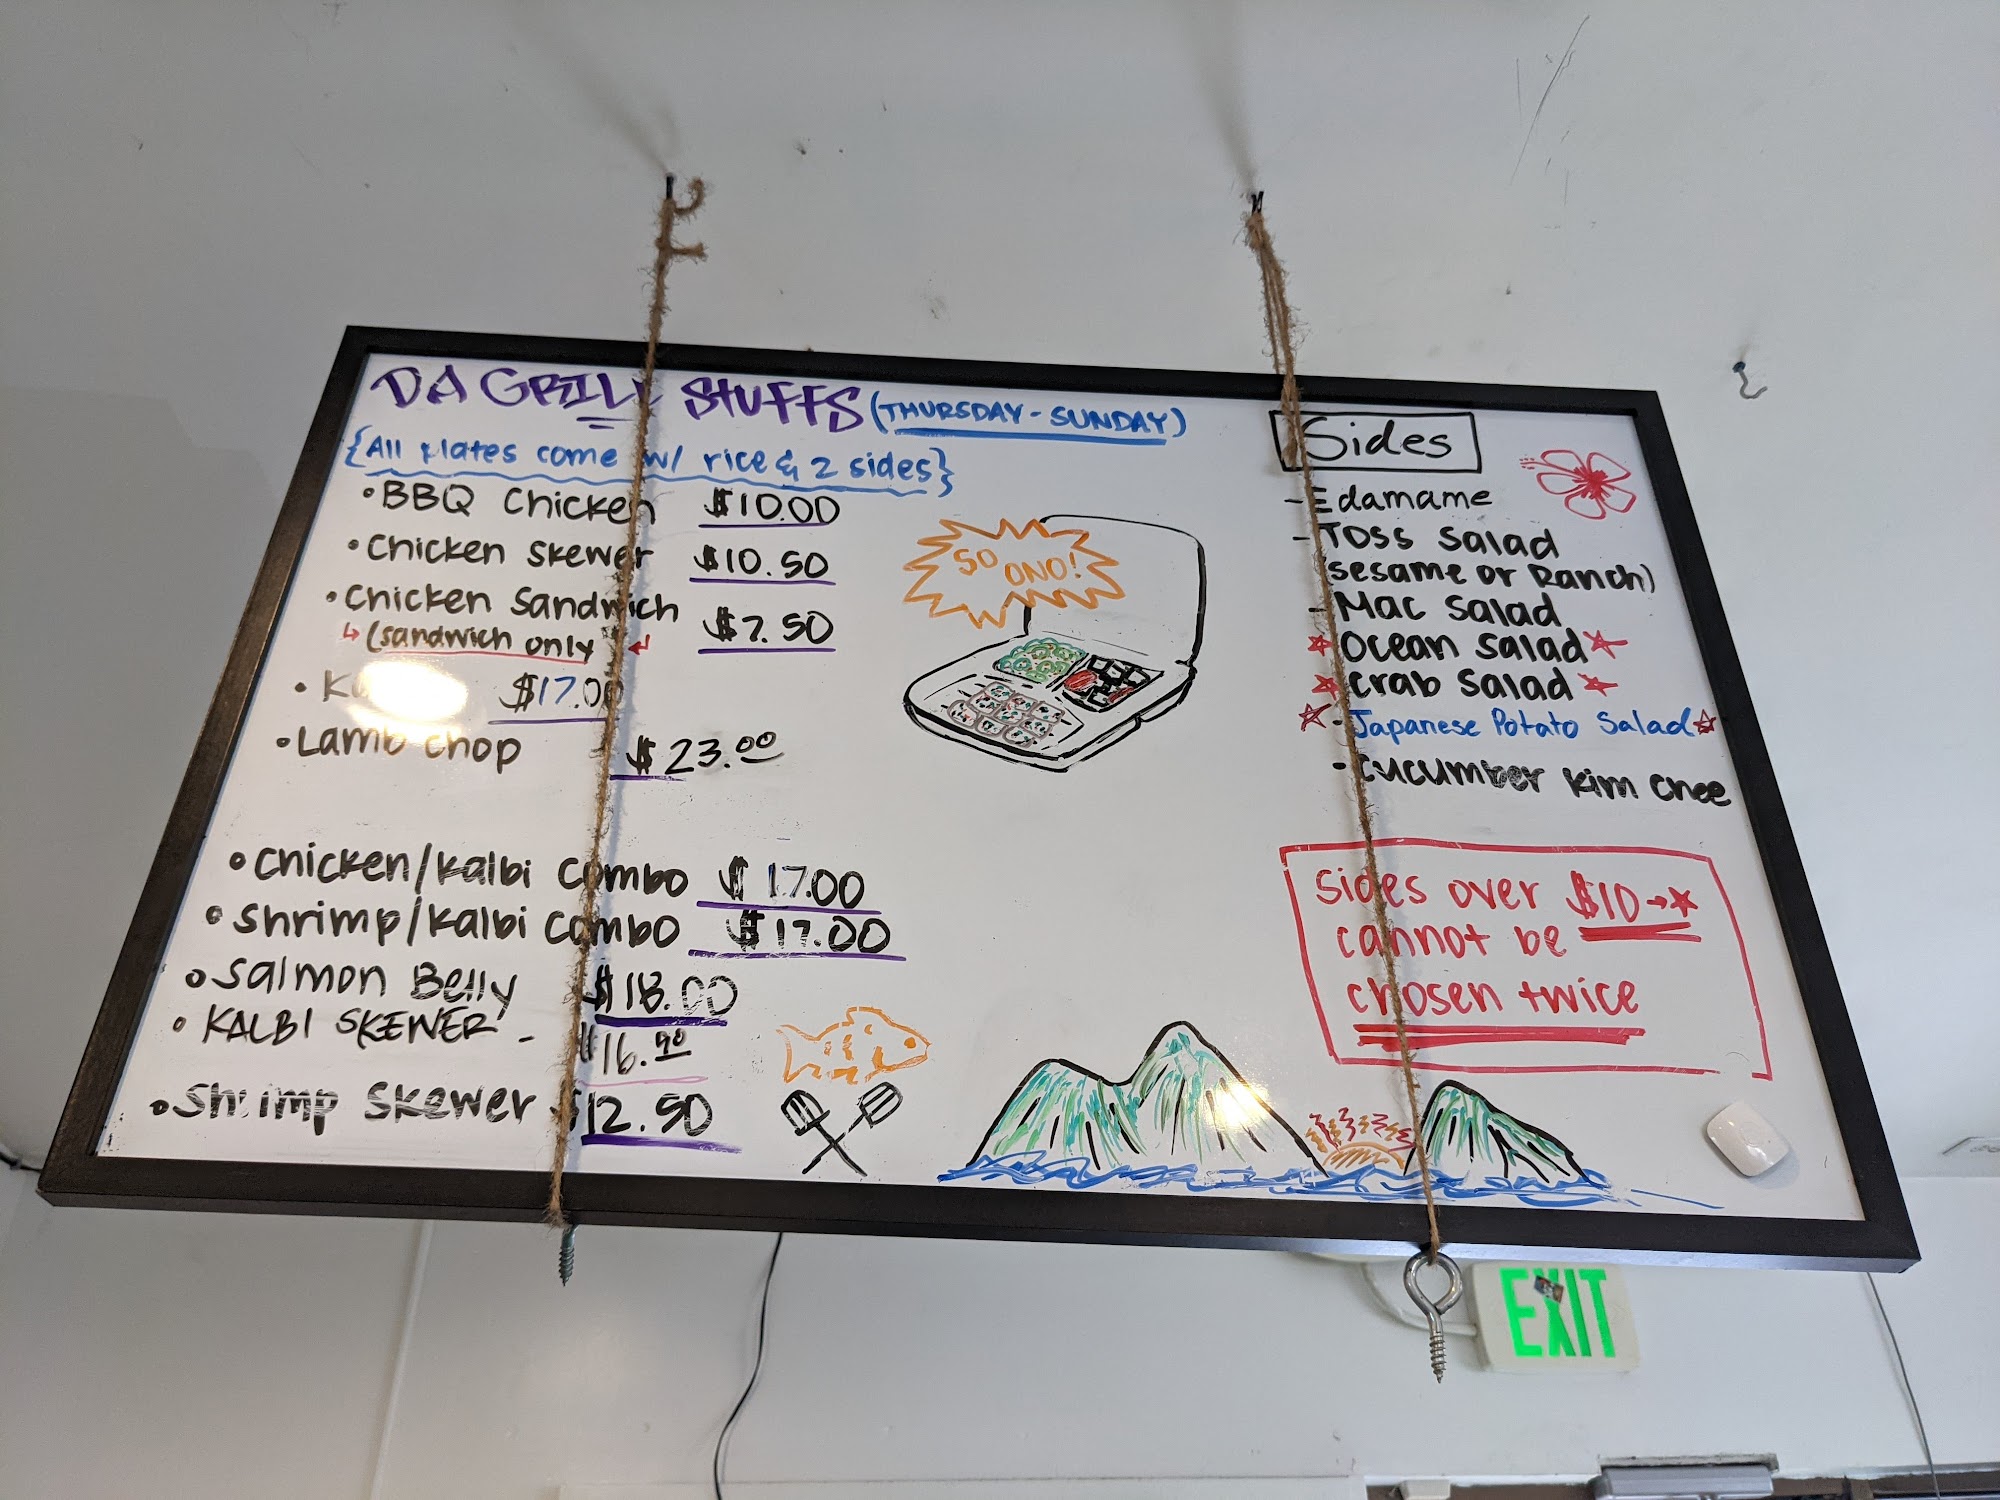 DA GRILL STUFFS (THURSDAY - SUNDAY)
{All plates come w/ rice & 2 sides}
• BBQ Chicken $10.00
• Chicken Skewer $10.50
• Chicken Sandwich $7.50
(sandwich only)
• $17.00
• Lamb Chop $23.00
• Chicken/Kalbi Combo $17.00
• Shrimp/Kalbi Combo $17.00
• Salmon Belly $18.00
• KALBI SKEWER -
• Shrimp Skewer $12.50
SO ONO!
Sides
- Edamame
- Toss Salad
(sesame or Ranch)
- Mac Salad
☆ Ocean Salad ☆
☆ Crab Salad ☆
☆ - Japanese Potato Salad ☆
- Cucumber Kim Chee
Sides over $10 → ☆
cannot be
chosen twice
EXIT